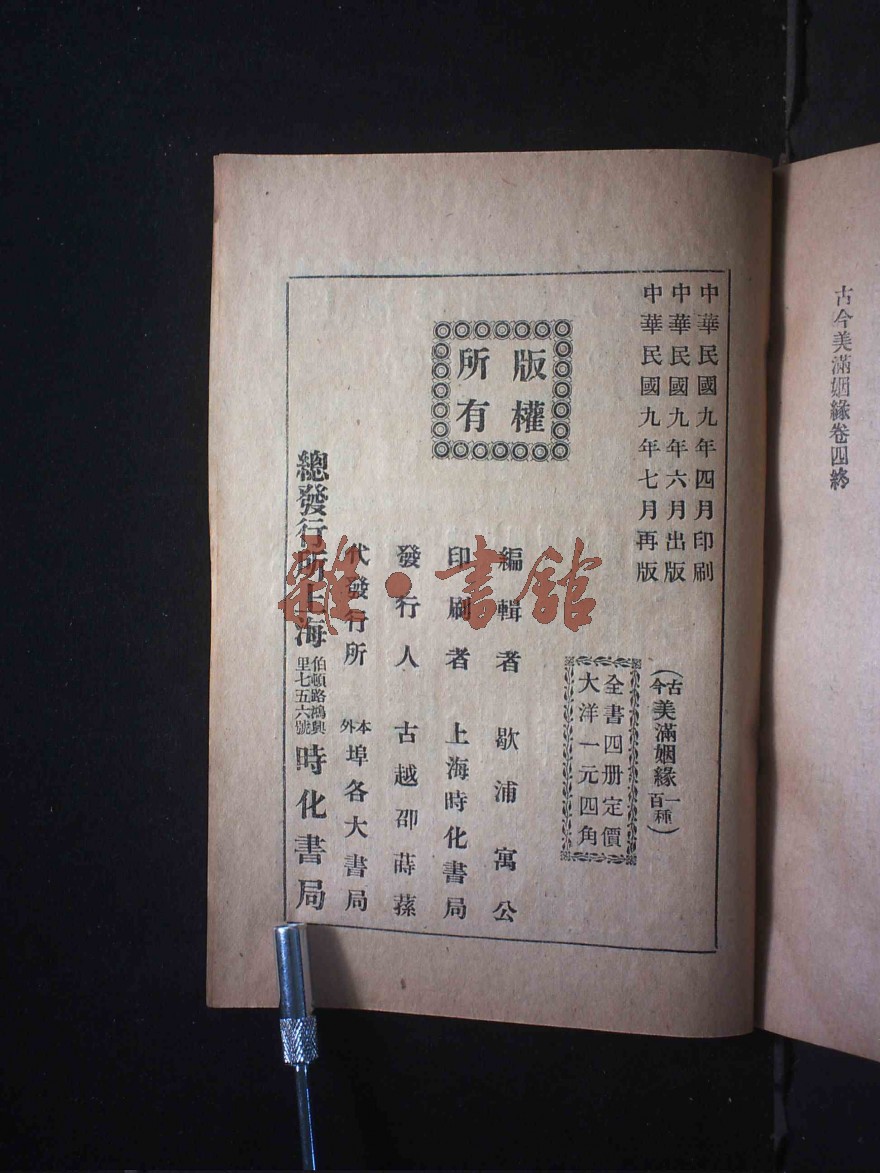 古今美滿姻緣卷四終
中華民國九年四月印刷
中華民國九年六月出版
中華民國九年七月再版
(古今美滿姻緣一百種)
全書四册定價
大洋一元四角
版權
所有
編輯者 歇浦寓公
印刷者 上海時化書局
發行人 古越邵蒔蓀
代發行所 本外埠各大書局
總發行所上海伯頓路鴻興里七五六號時化書局
雜·書館